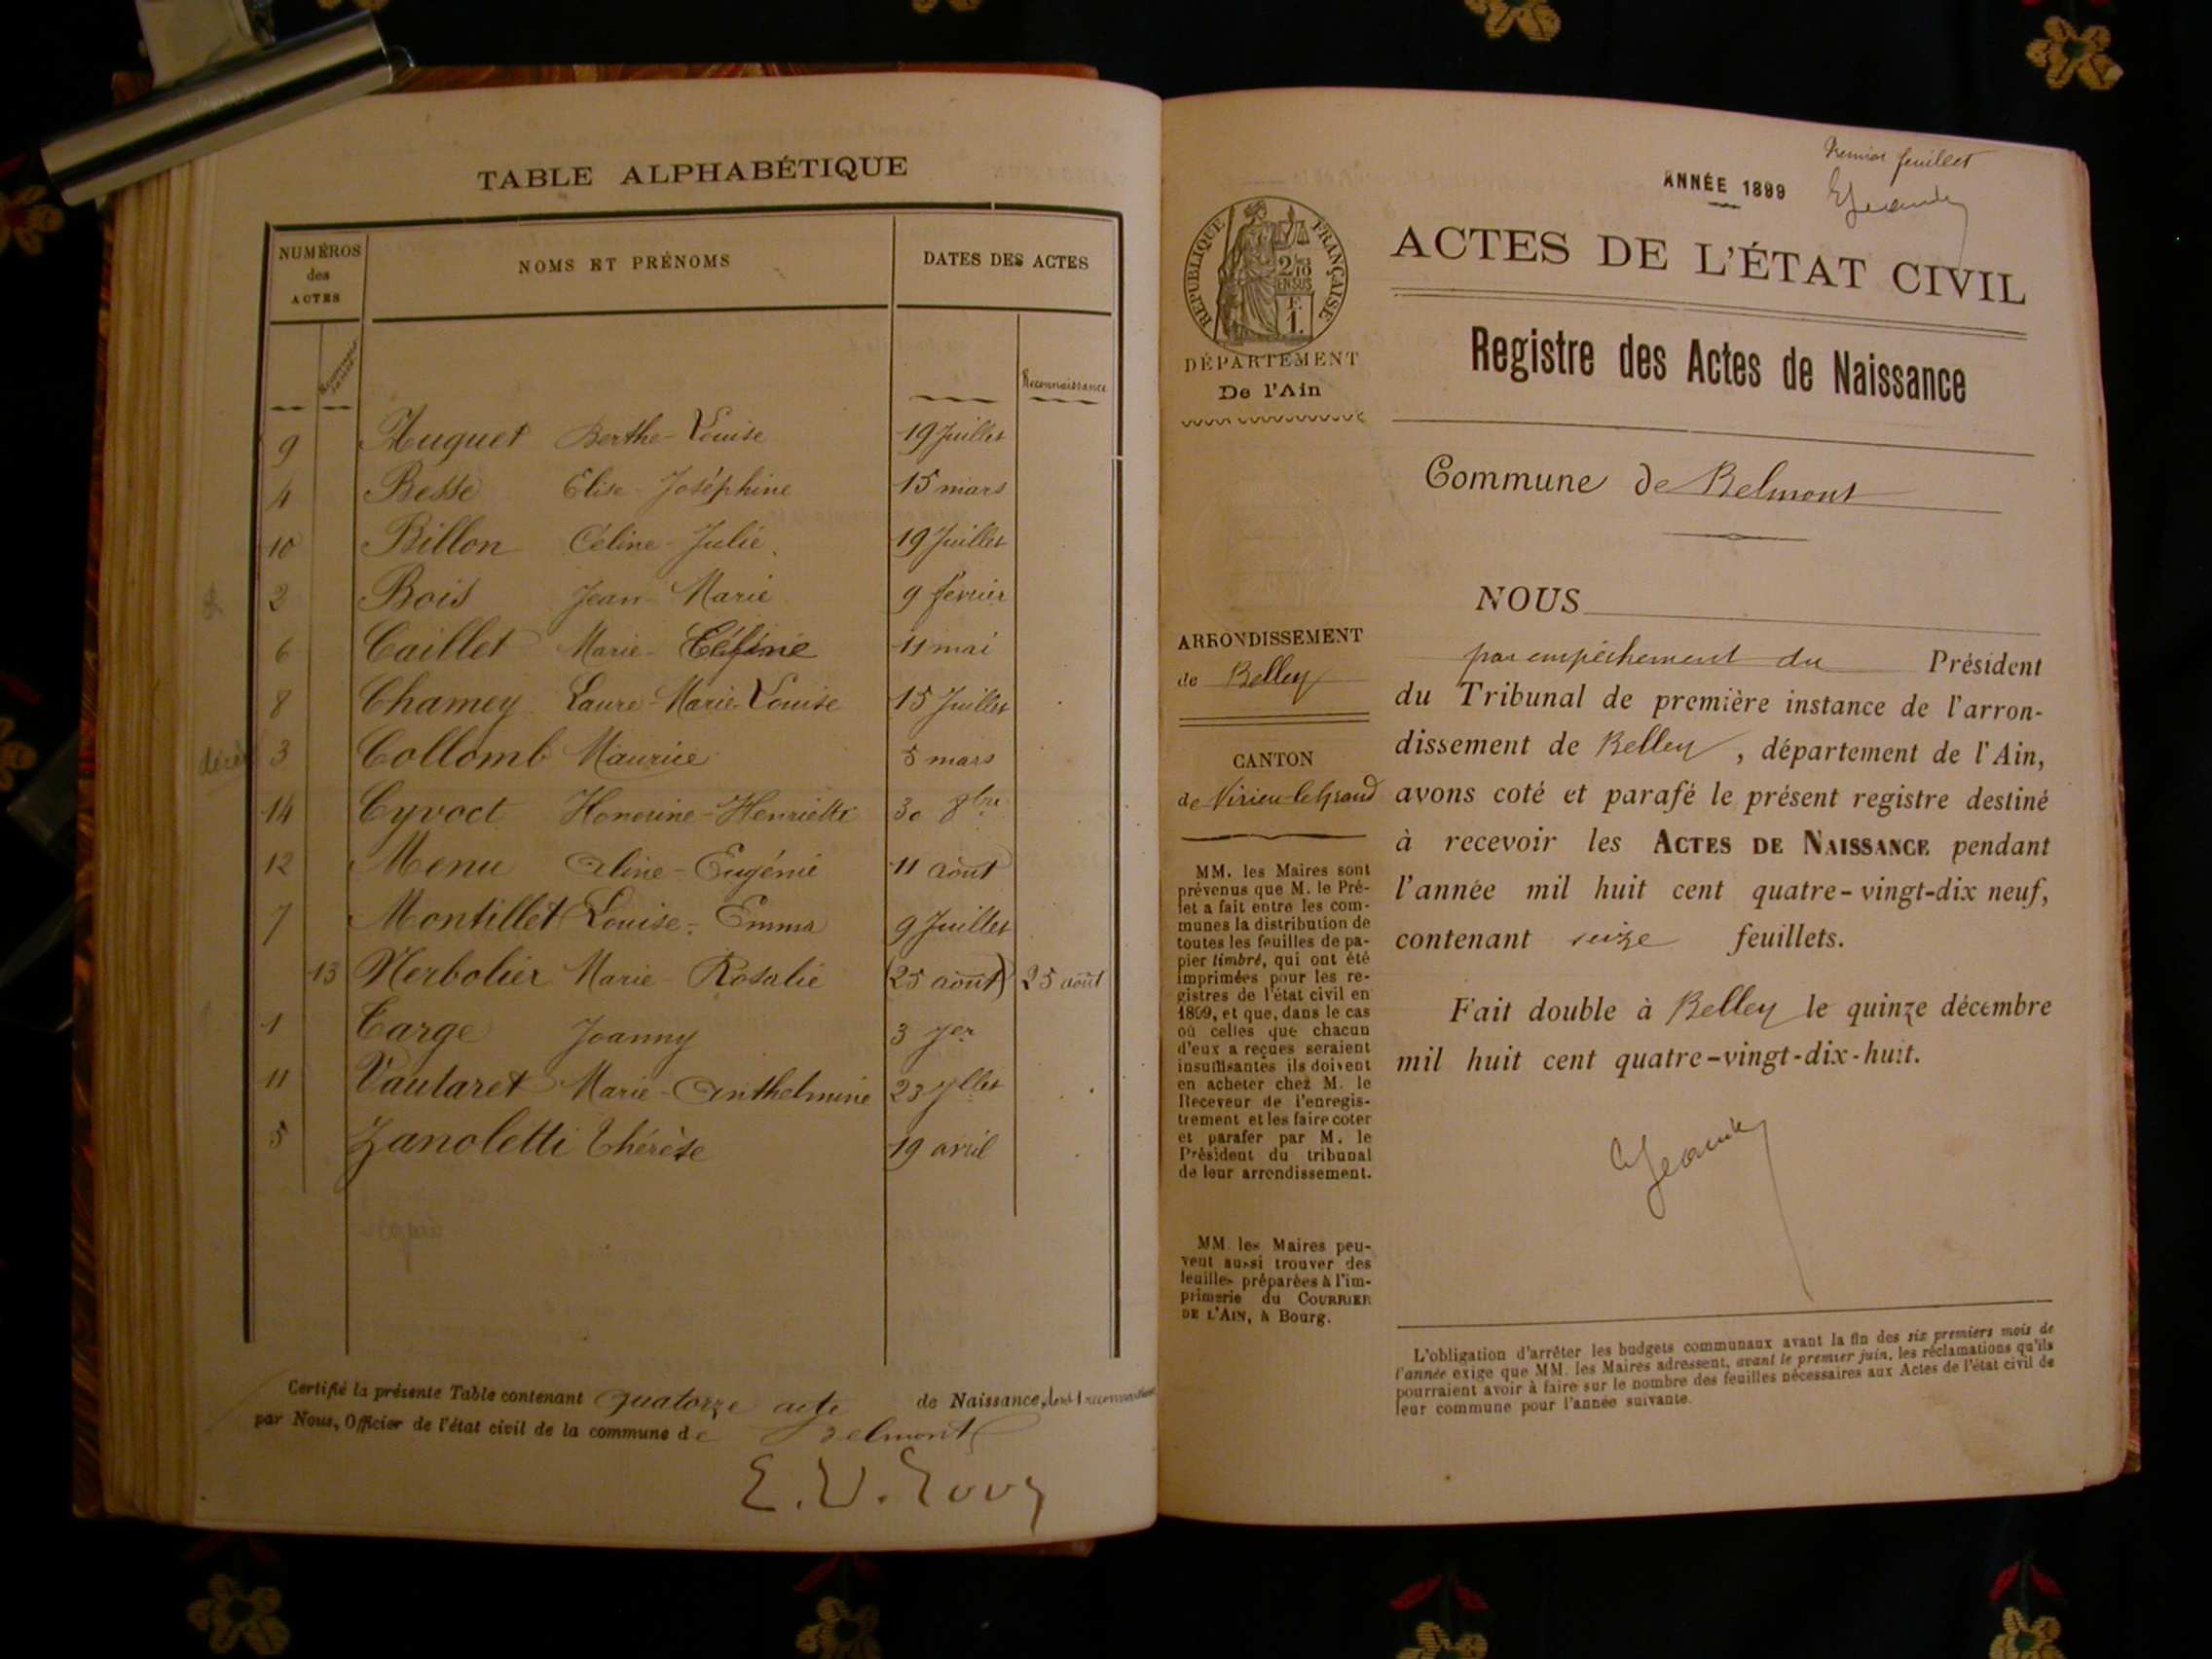 TABLE ALPHABÉTIQUE
NUMÉROS des ACTES
NOMS ET PRÉNOMS
DATES DES ACTES
Reconnaissance
9 Huguet Berthe-Louise 19 Juillet
4 Besse Elise-Joséphine 15 mars
10 Billon Céline-Julie 19 Juillet
2 Bois Jean-Marie 9 février
6 Caillet Marie-Céline 11 mai
8 Chamey Laure-Marie-Louise 15 Juillet
3 Collomb Maurice 5 mars
14 Cyvoct Honorine-Henriette 30 8bre
12 Menu Aline-Eugénie 11 août
7 Montillet Louise-Emma 9 Juillet
13 Nerbolier Marie-Rosalie (25 août) 25 août
1 Targe Joanny 3 Jer
11 Vautaret Marie-Anthelmine 23 Jllet
5 Zanoletti Thérèse 19 avril
Certifié la présente Table contenant quatorze acte de Naissance, dont 1 reconnaissance
par Nous, Officier de l'état civil de la commune de Belmont
Premier feuillet
ANNÉE 1899
RÉPUBLIQUE FRANÇAISE
2/10 EN SUS
F. 1.
ACTES DE L'ÉTAT CIVIL
Registre des Actes de Naissance
DÉPARTEMENT
De l'Ain
Commune de Belmont
NOUS
par empêchement du Président
du Tribunal de première instance de l'arron-
dissement de Belley, département de l'Ain,
avons coté et parafé le présent registre destiné
à recevoir les ACTES DE NAISSANCE pendant
l'année mil huit cent quatre-vingt-dix neuf,
contenant seize feuillets.
Fait double à Belley le quinze décembre
mil huit cent quatre-vingt-dix-huit.
ARRONDISSEMENT
de Belley
CANTON
de Virieu-le-Grand
MM. les Maires sont
prévenus que M. le Pré-
fet a fait entre les com-
munes la distribution de
toutes les feuilles de pa-
pier timbré, qui ont été
imprimées pour les re-
gistres de l'état civil en
1899, et que, dans le cas
où celles que chacun
d'eux a reçues seraient
insuffisantes ils doivent
en acheter chez M. le
Receveur de l'enregis-
trement et les faire coter
et parafer par M. le
Président du tribunal
de leur arrondissement.
MM. les Maires peu-
vent aussi trouver des
feuilles préparées à l'im-
primerie du COURRIER
DE L'AIN, à Bourg.
L'obligation d'arrêter les budgets communaux avant la fin des six premiers mois de
l'année exige que MM. les Maires adressent, avant le premier juin, les réclamations qu'ils
pourraient avoir à faire sur le nombre des feuilles nécessaires aux Actes de l'état civil de
leur commune pour l'année suivante.